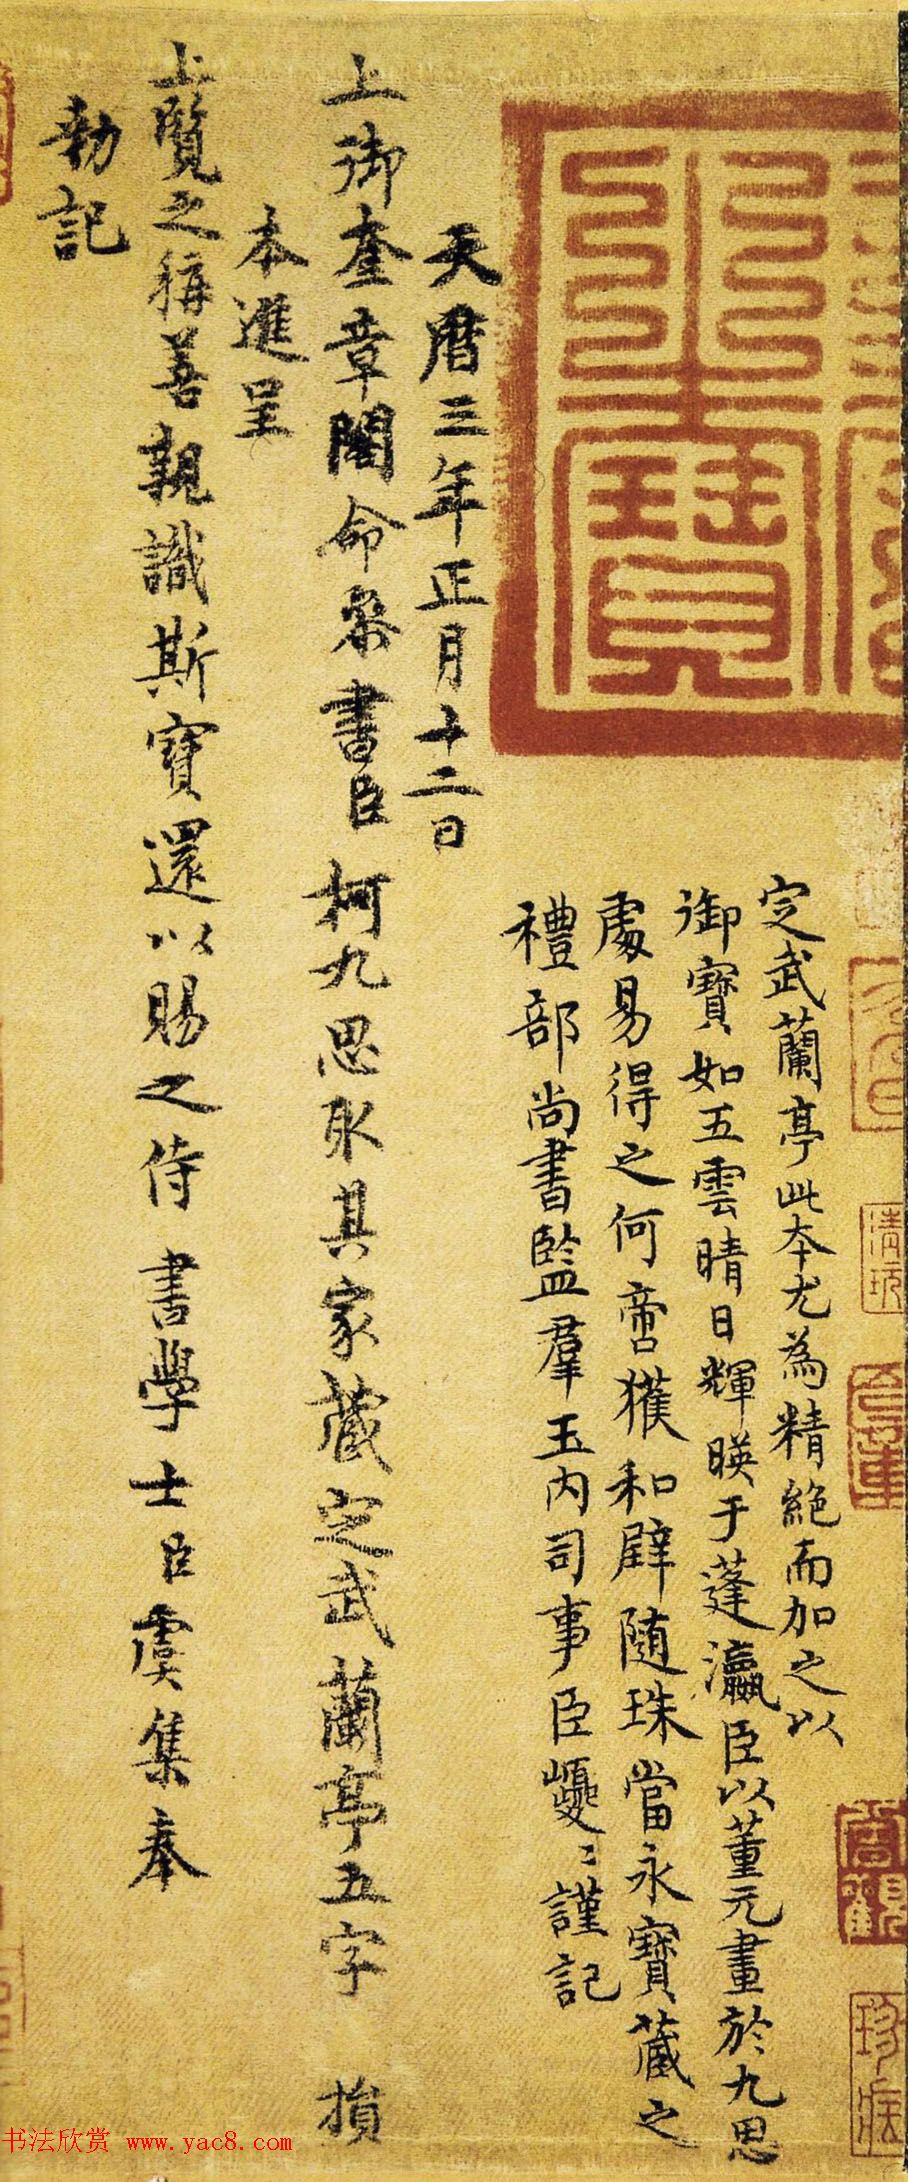 定武蘭亭此本尤為精絕而加之以
御寶如五雲晴日輝暎于蓬瀛臣以董元畫於九思
處易得之何啻獲和璧随珠當永寶藏之
禮部尚書監羣玉內司事臣巙〻謹記
天曆三年正月十二日
上御奎章閣命叅書臣柯九思取其家藏定武蘭亭五字 損
本進呈
上覽之稱善親識斯寶還以賜之侍 書學士臣虞集奉
勑記
书法欣赏 www.yac8.com